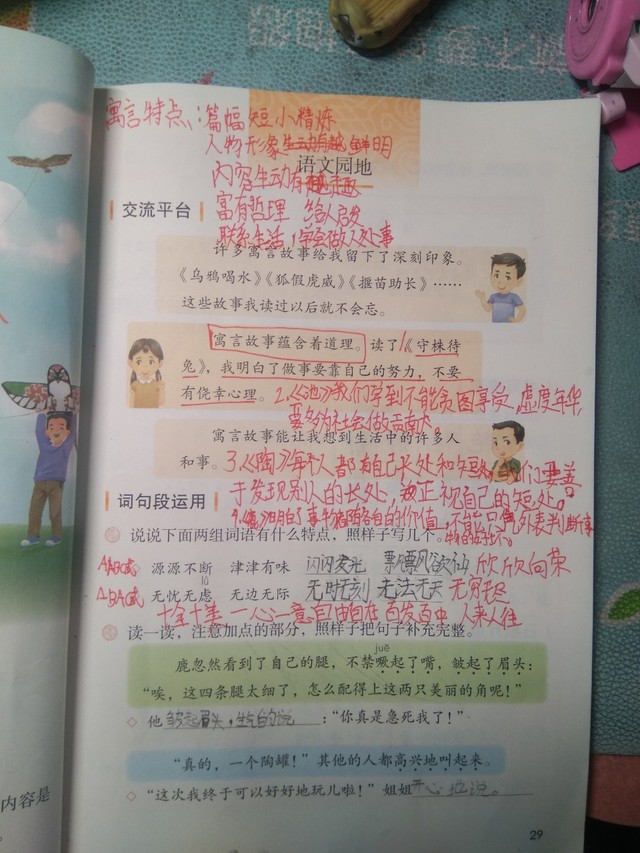 寓言特点:篇幅短小精炼
人物形象鲜明
语文园地
内容生动有趣
交流平台
富有哲理 给人启发
联系生活,学会做人处事
许多寓言故事给我留下了深刻印象。
《乌鸦喝水》《狐假虎威》《揠苗助长》……
这些故事我读过以后就不会忘。
寓言故事蕴含着道理。读了《守株待
兔》,我明白了做事要靠自己的努力,不要
有侥幸心理。2.《池》我们学到不能贪图享受,虚度年华,
要多为社会做贡献。
寓言故事能让我想到生活中的许多人
和事。3.《陶》每个人都有自己长处和短处,我们要善
于发现别人的长处,正视自己的短处。
词句段运用
事物都有各自的价值,不能只凭外表判断事
物的好坏。
说说下面两组词语有什么特点,照样子写几个。
AABC式 源源不断 津津有味 闪闪发光 飘飘欲仙 欣欣向荣
ABAC式 无忧无虑 无边无际 无时无刻 无法无天 无穷无尽
十全十美 一心一意 自由自在 百发百中 人来人往
读一读,注意加点的部分,照样子把句子补充完整。
juē
鹿忽然看到了自己的腿,不禁噘起了嘴,皱起了眉头:
“唉,这四条腿太细了,怎么配得上这两只美丽的角呢!”
他皱起眉头,生气的说:“你真是急死我了!”
“真的,一个陶罐!”其他的人都高兴地叫起来。
“这次我终于可以好好地玩儿啦!”姐姐开心地说。
内容是
29